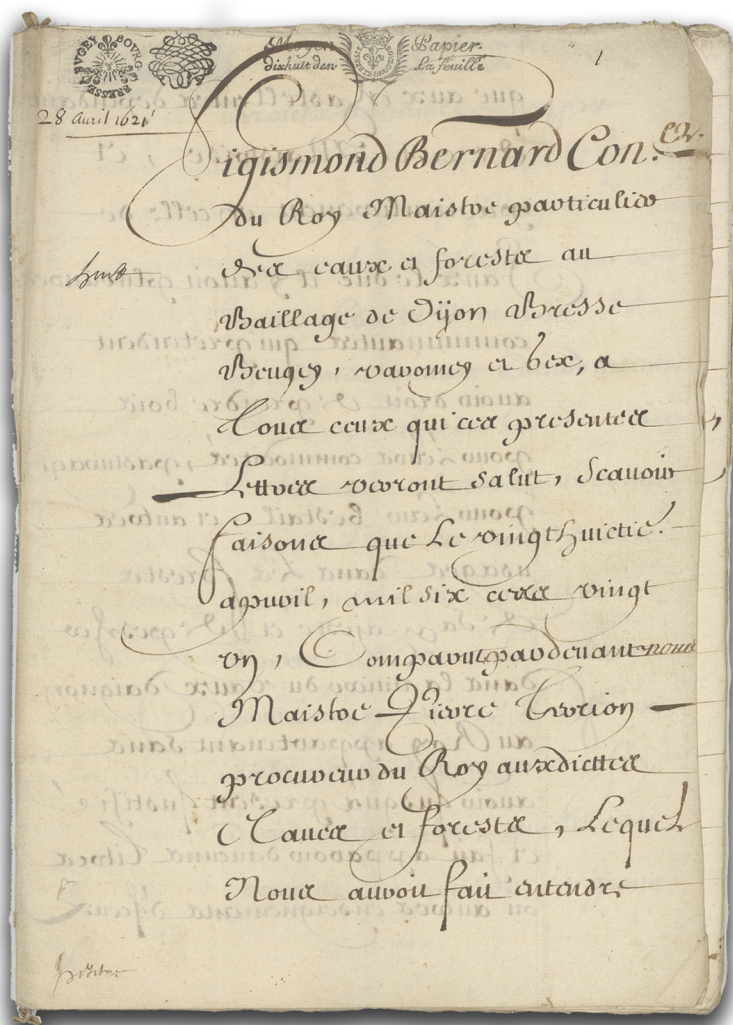 BRESSE BUGEY BOURG
Moyen Papier
dixhuit den. La feuille
1
28 Auril 1621
Sigismond Bernard Con.er
du Roy Maistre particulier
des eaux et forests au
Baillage de Dijon Bresse
Beugey, varomey et Gex, a
Tous ceux qui ces presentes
Lettres verront salut, scauoir
faisons que Le vingthuictie.
apuril, mil six cens vingt
vn, Comparut pardeuant nous
Maistre Pierre Terrion
procureur du Roy auxdictes
Eaues et forests, Lequel
Nous auroit fait entendre